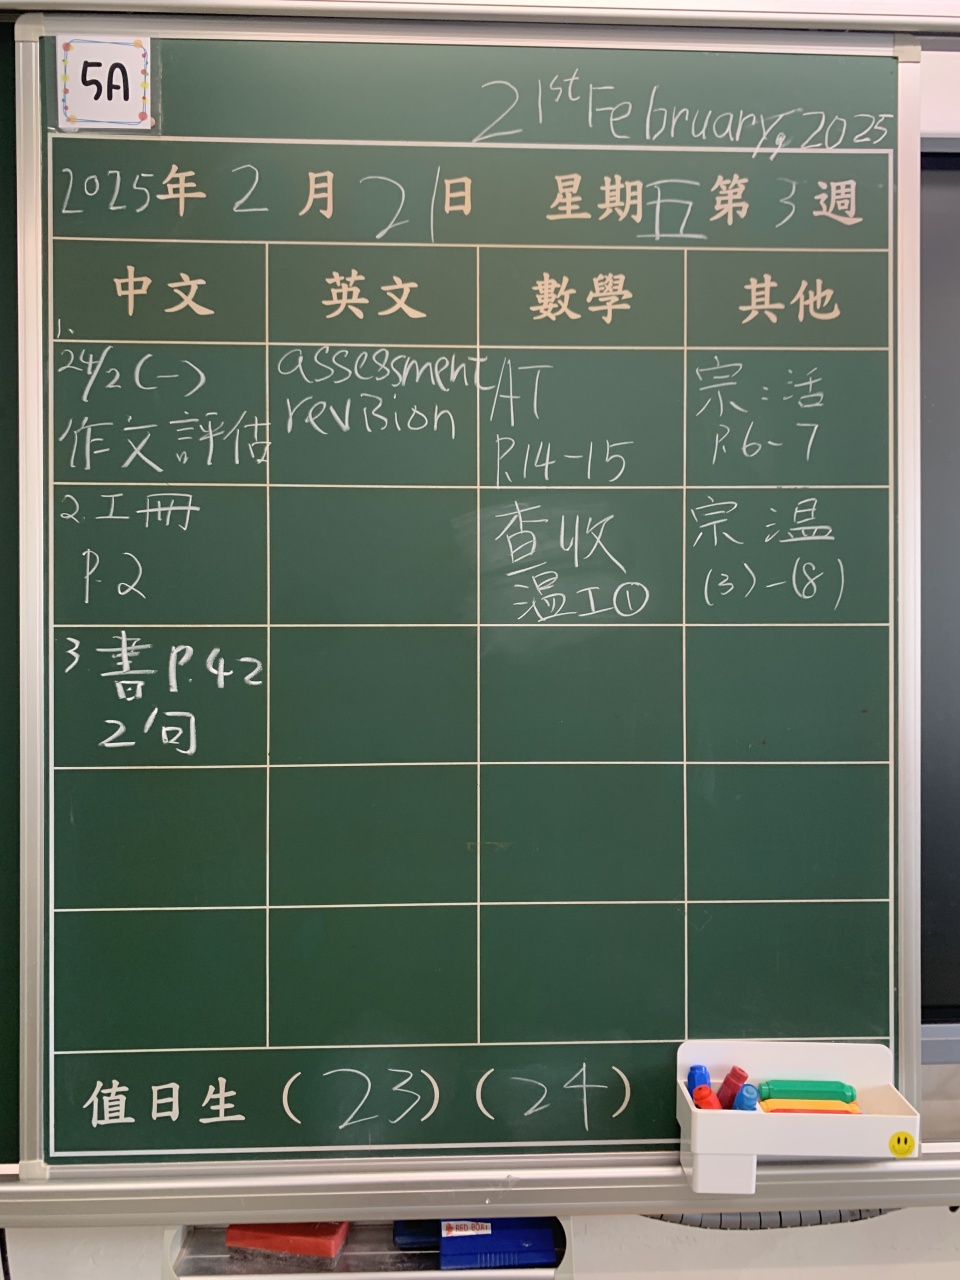 5A
21st February, 2025
2025年2月21日 星期五第3週
中文 英文 數學 其他
1.
24/2(一)
作文評估
assessment
revision
AT
P.14-15
宗:活
P.6-7
2.工冊
P.2
查收
温工①
宗温
(3)-(8)
3.書P.42
2句
值日生(23)(24)
RED BOAT